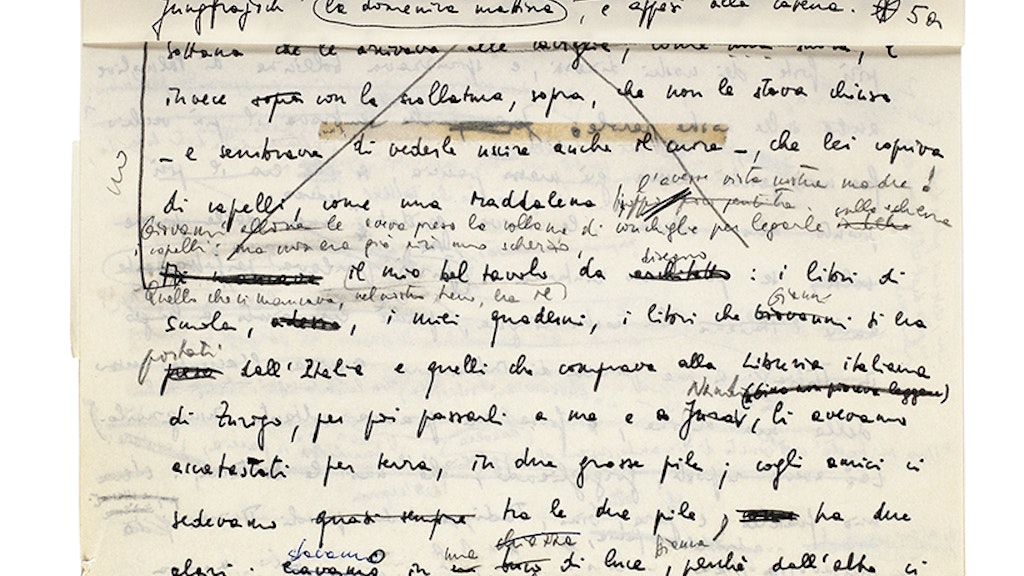 (la domenica mattina), e appesi alla catena. 50a
sottana che le arrivava alle caviglie, come una suora, e
invece sopra con la scollatura, sopra, che non le stava chiusa
– e sembrava di vederle uscire anche il cuore –, che lei copriva
l'avesse vista nostra madre!
di capelli, come una Maddalena
sullo schiena
Giovanni allora le aveva preso la collana di conchiglie per legarle
i capelli: ma non era già più uno scherzo,
disegno
il mio bel tavolo da architetto : i libri di
Quello che ci mancava, nel nostro , era il
Gianni
scuola, adesso, i miei quaderni, i libri che Giovanni si era
portati
preso dall'Italia e quelli che comprava alla Libreria italiana
di Zurigo, per poi passarli a me e a , li avevamo
accatastati per terra, in due grosse pile; cogli amici ci
sedevamo quasi sempre tra le due pile, fra due
stavamo una bianca
alari: in di luce, perché dall'alto ci